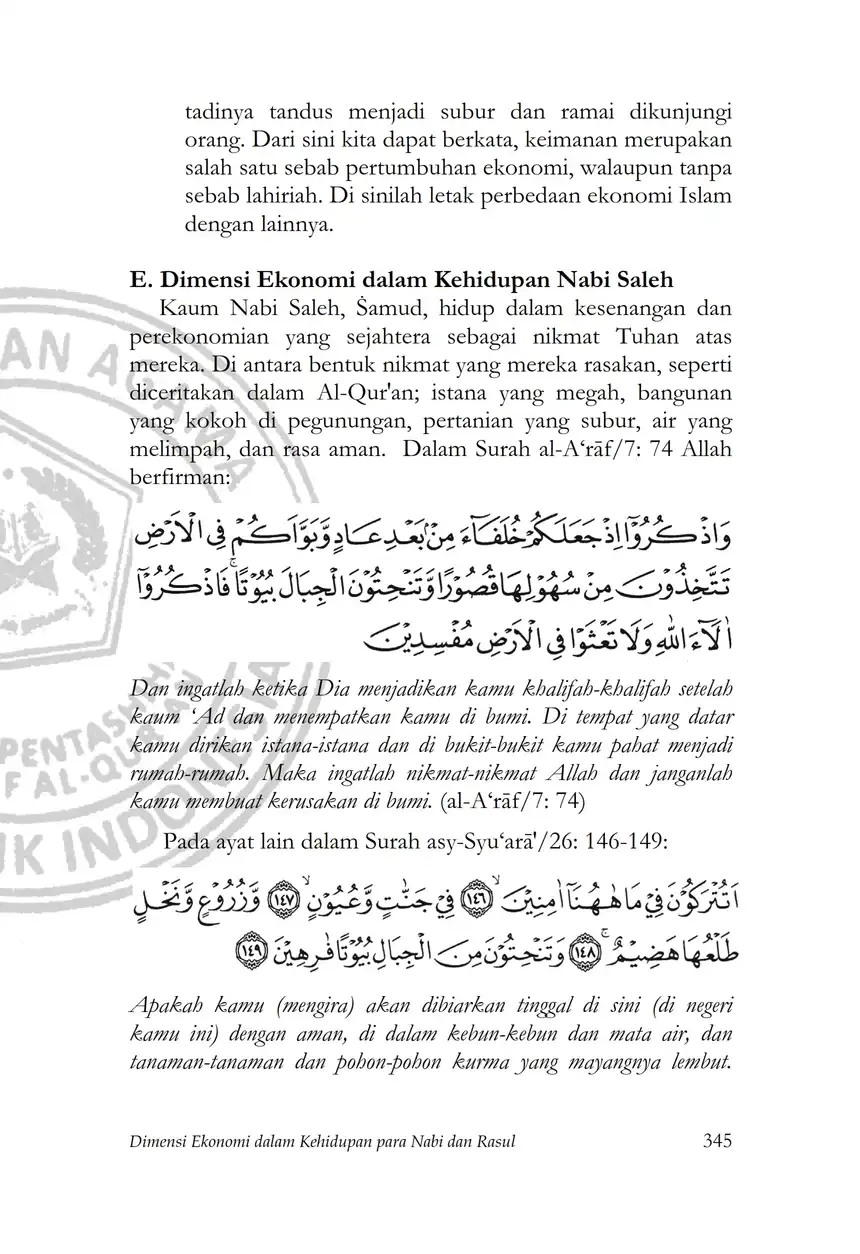 tadinya tandus menjadi subur dan ramai dikunjungi
orang. Dari sini kita dapat berkata, keimanan merupakan
salah satu sebab pertumbuhan ekonomi, walaupun tanpa
sebab lahiriah. Di sinilah letak perbedaan ekonomi Islam
dengan lainnya.
E. Dimensi Ekonomi dalam Kehidupan Nabi Saleh
Kaum Nabi Saleh, Ṡamud, hidup dalam kesenangan dan
perekonomian yang sejahtera sebagai nikmat Tuhan atas
mereka. Di antara bentuk nikmat yang mereka rasakan, seperti
diceritakan dalam Al-Qur'an; istana yang megah, bangunan
yang kokoh di pegunungan, pertanian yang subur, air yang
melimpah, dan rasa aman. Dalam Surah al-A‘rāf/7: 74 Allah
berfirman:
وَاذْكُرُوْٓا اِذْ جَعَلَكُمْ خُلَفَاۤءَ مِنْۢ بَعْدِ عَادٍ وَّبَوَّاَكُمْ فِى الْاَرْضِ
تَتَّخِذُوْنَ مِنْ سُهُوْلِهَا قُصُوْرًا وَّتَنْحِتُوْنَ الْجِبَالَ بُيُوْتًاۚ فَاذْكُرُوْٓا
اٰلَاۤءَ اللّٰهِ وَلَا تَعْثَوْا فِى الْاَرْضِ مُفْسِدِيْنَ
Dan ingatlah ketika Dia menjadikan kamu khalifah-khalifah setelah
kaum ‘Ad dan menempatkan kamu di bumi. Di tempat yang datar
kamu dirikan istana-istana dan di bukit-bukit kamu pahat menjadi
rumah-rumah. Maka ingatlah nikmat-nikmat Allah dan janganlah
kamu membuat kerusakan di bumi. (al-A‘rāf/7: 74)
Pada ayat lain dalam Surah asy-Syu‘arā'/26: 146-149:
اَتُتْرَكُوْنَ فِيْ مَا هٰهُنَآ اٰمِنِيْنَۙ ١٤٦ فِيْ جَنّٰتٍ وَّعُيُوْنٍۙ ١٤٧ وَّزُرُوْعٍ وَّنَخْلٍ
طَلْعُهَا هَضِيْمٌۚ ١٤٨ وَتَنْحِتُوْنَ مِنَ الْجِبَالِ بُيُوْتًا فٰرِهِيْنَ ١٤٩
Apakah kamu (mengira) akan dibiarkan tinggal di sini (di negeri
kamu ini) dengan aman, di dalam kebun-kebun dan mata air, dan
tanaman-tanaman dan pohon-pohon kurma yang mayangnya lembut.
Dimensi Ekonomi dalam Kehidupan para Nabi dan Rasul 345